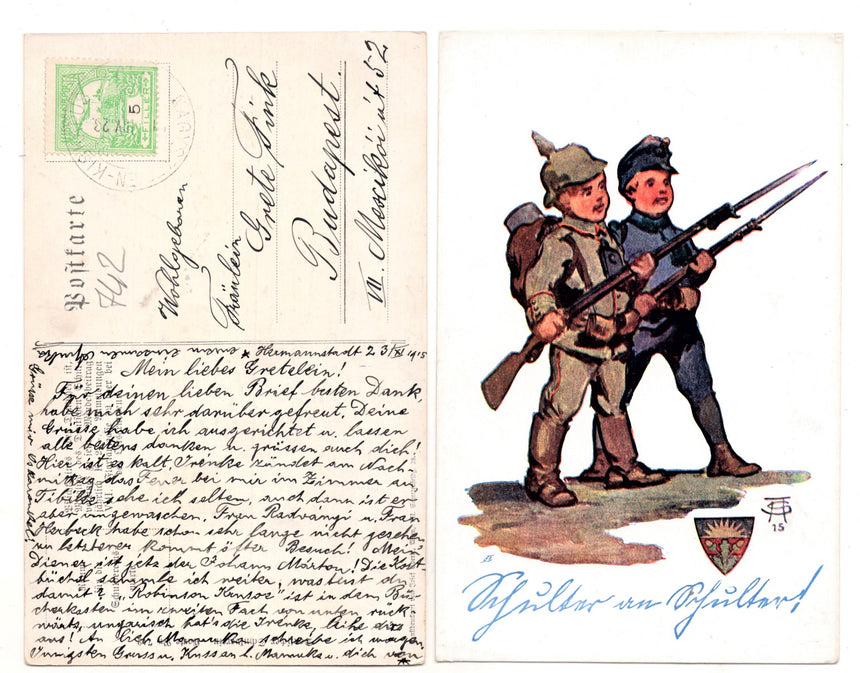 5
FILLER
Postkarte
742
Wohlgeboren
Fräulein
Grete Fink
Budapest.
VII. Mescikói út 52
* Hermannstadt 23/XI 1915
Mein liebes Gretelein!
Für deinen lieben Brief besten Dank,
habe mich sehr darüber gefreut. Deine
Grüsse habe ich ausgerichtet u. lassen
alle bestens danken u. grüssen auch dich!
Hier ist es kalt, Irenke zündet am Nach-
mittag das Feuer bei mir im Zimmer an,
Tibi sehe ich selten, auch dann ist er
aber ungewaschen. Frau Radványi u. Frau
Herbeck habe schon sehr lange nicht gesehen
letzterer kommt öfter Besuch! Mein
Diener ist jetz der Johann Márton! Die
ich weiter, was tust du
damit? "Robinson Krusoe" ist in dem Bü-
cherkasten im zweiten Fach von unten rück
wärts, ungarisch hat's die Irenke, leihe dir's
aus! An lieb Mamuka schreibe ich morgen
Innigsten Gruss u. Kuss an l. Mamuka u. dich von
Grüsse mir
15
Schulter an Schulter!